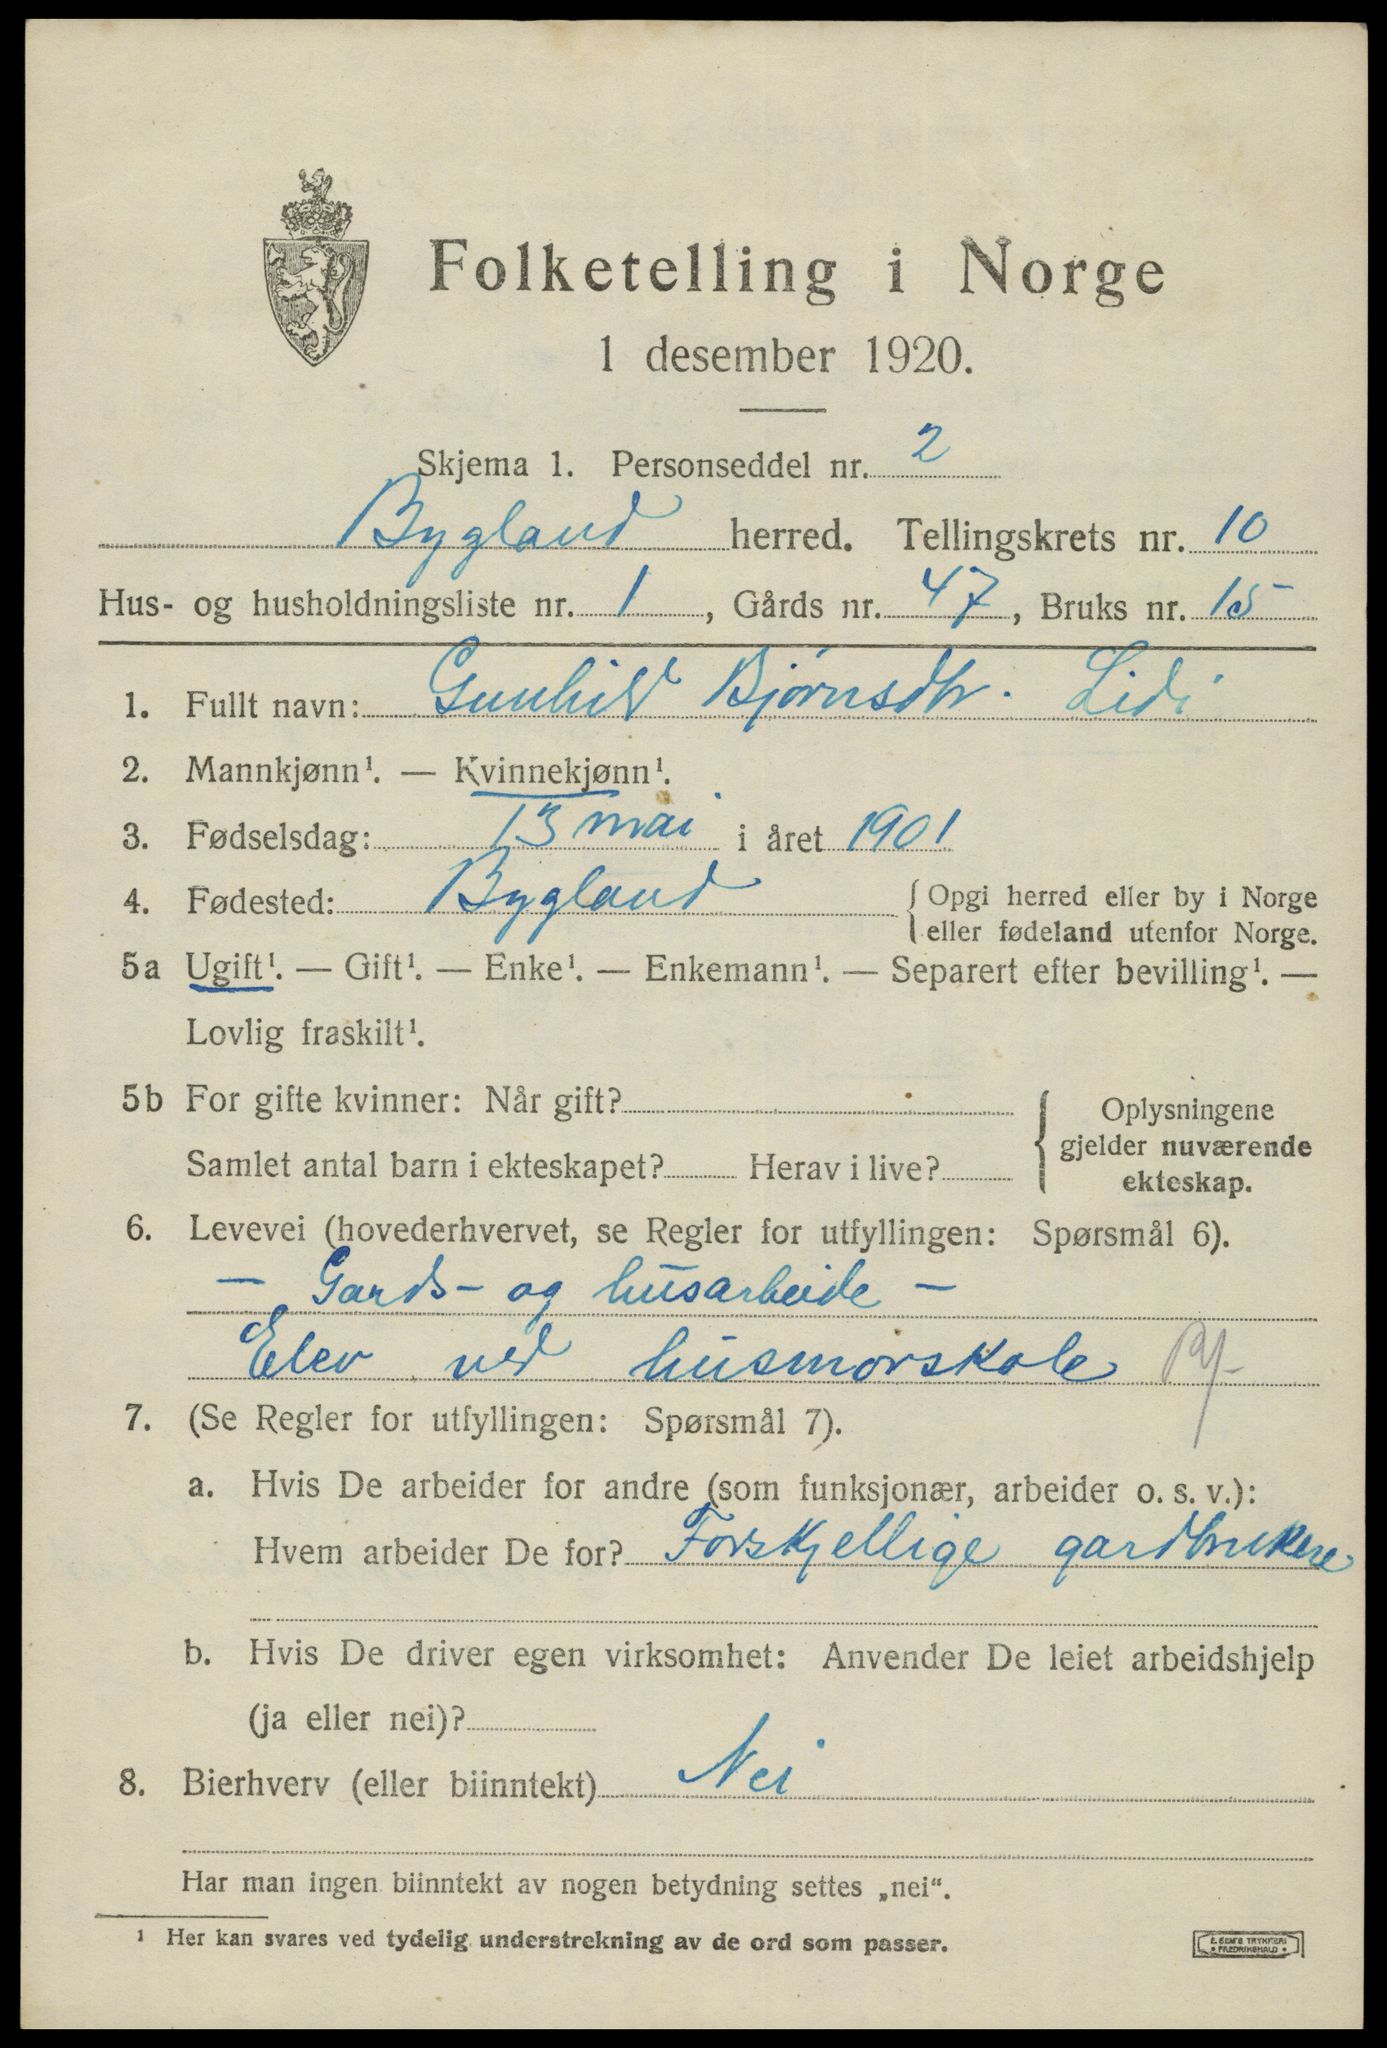 Folketelling i Norge
1 desember 1920.
Skjema 1. Personseddel nr. 2
Bygland herred. Tellingskrets nr. 10
Hus- og husholdningsliste nr. 1, Gårds nr. 47, Bruks nr. 15
1. Fullt navn: Gunhild Bjørnsdtr. Lidi
2. Mannkjønn¹. — Kvinnekjønn¹.
3. Fødselsdag: 13 mai i året 1901
4. Fødested: Bygland {Opgi herred eller by i Norge
eller fødeland utenfor Norge.
5a Ugift¹. — Gift¹. — Enke¹. — Enkemann¹. — Separert efter bevilling¹. —
Lovlig fraskilt¹.
5b For gifte kvinner: Når gift?
Samlet antal barn i ekteskapet? Herav i live?
{Oplysningene
gjelder nuværende
ekteskap.
6. Levevei (hovederhvervet, se Regler for utfyllingen: Spørsmål 6).
— Gards- og husarbeide —
Elev ved husmorskole
7. (Se Regler for utfyllingen: Spørsmål 7).
a. Hvis De arbeider for andre (som funksjonær, arbeider o. s. v.):
Hvem arbeider De for? Forskjellige gardbrukere
b. Hvis De driver egen virksomhet: Anvender De leiet arbeidshjelp
(ja eller nei)?
8. Bierhverv (eller biinntekt) Nei
Har man ingen biinntekt av nogen betydning settes „nei“.
¹ Her kan svares ved tydelig understrekning av de ord som passer.
E. SEM'S TRYKKERI
FREDRIKSHALD